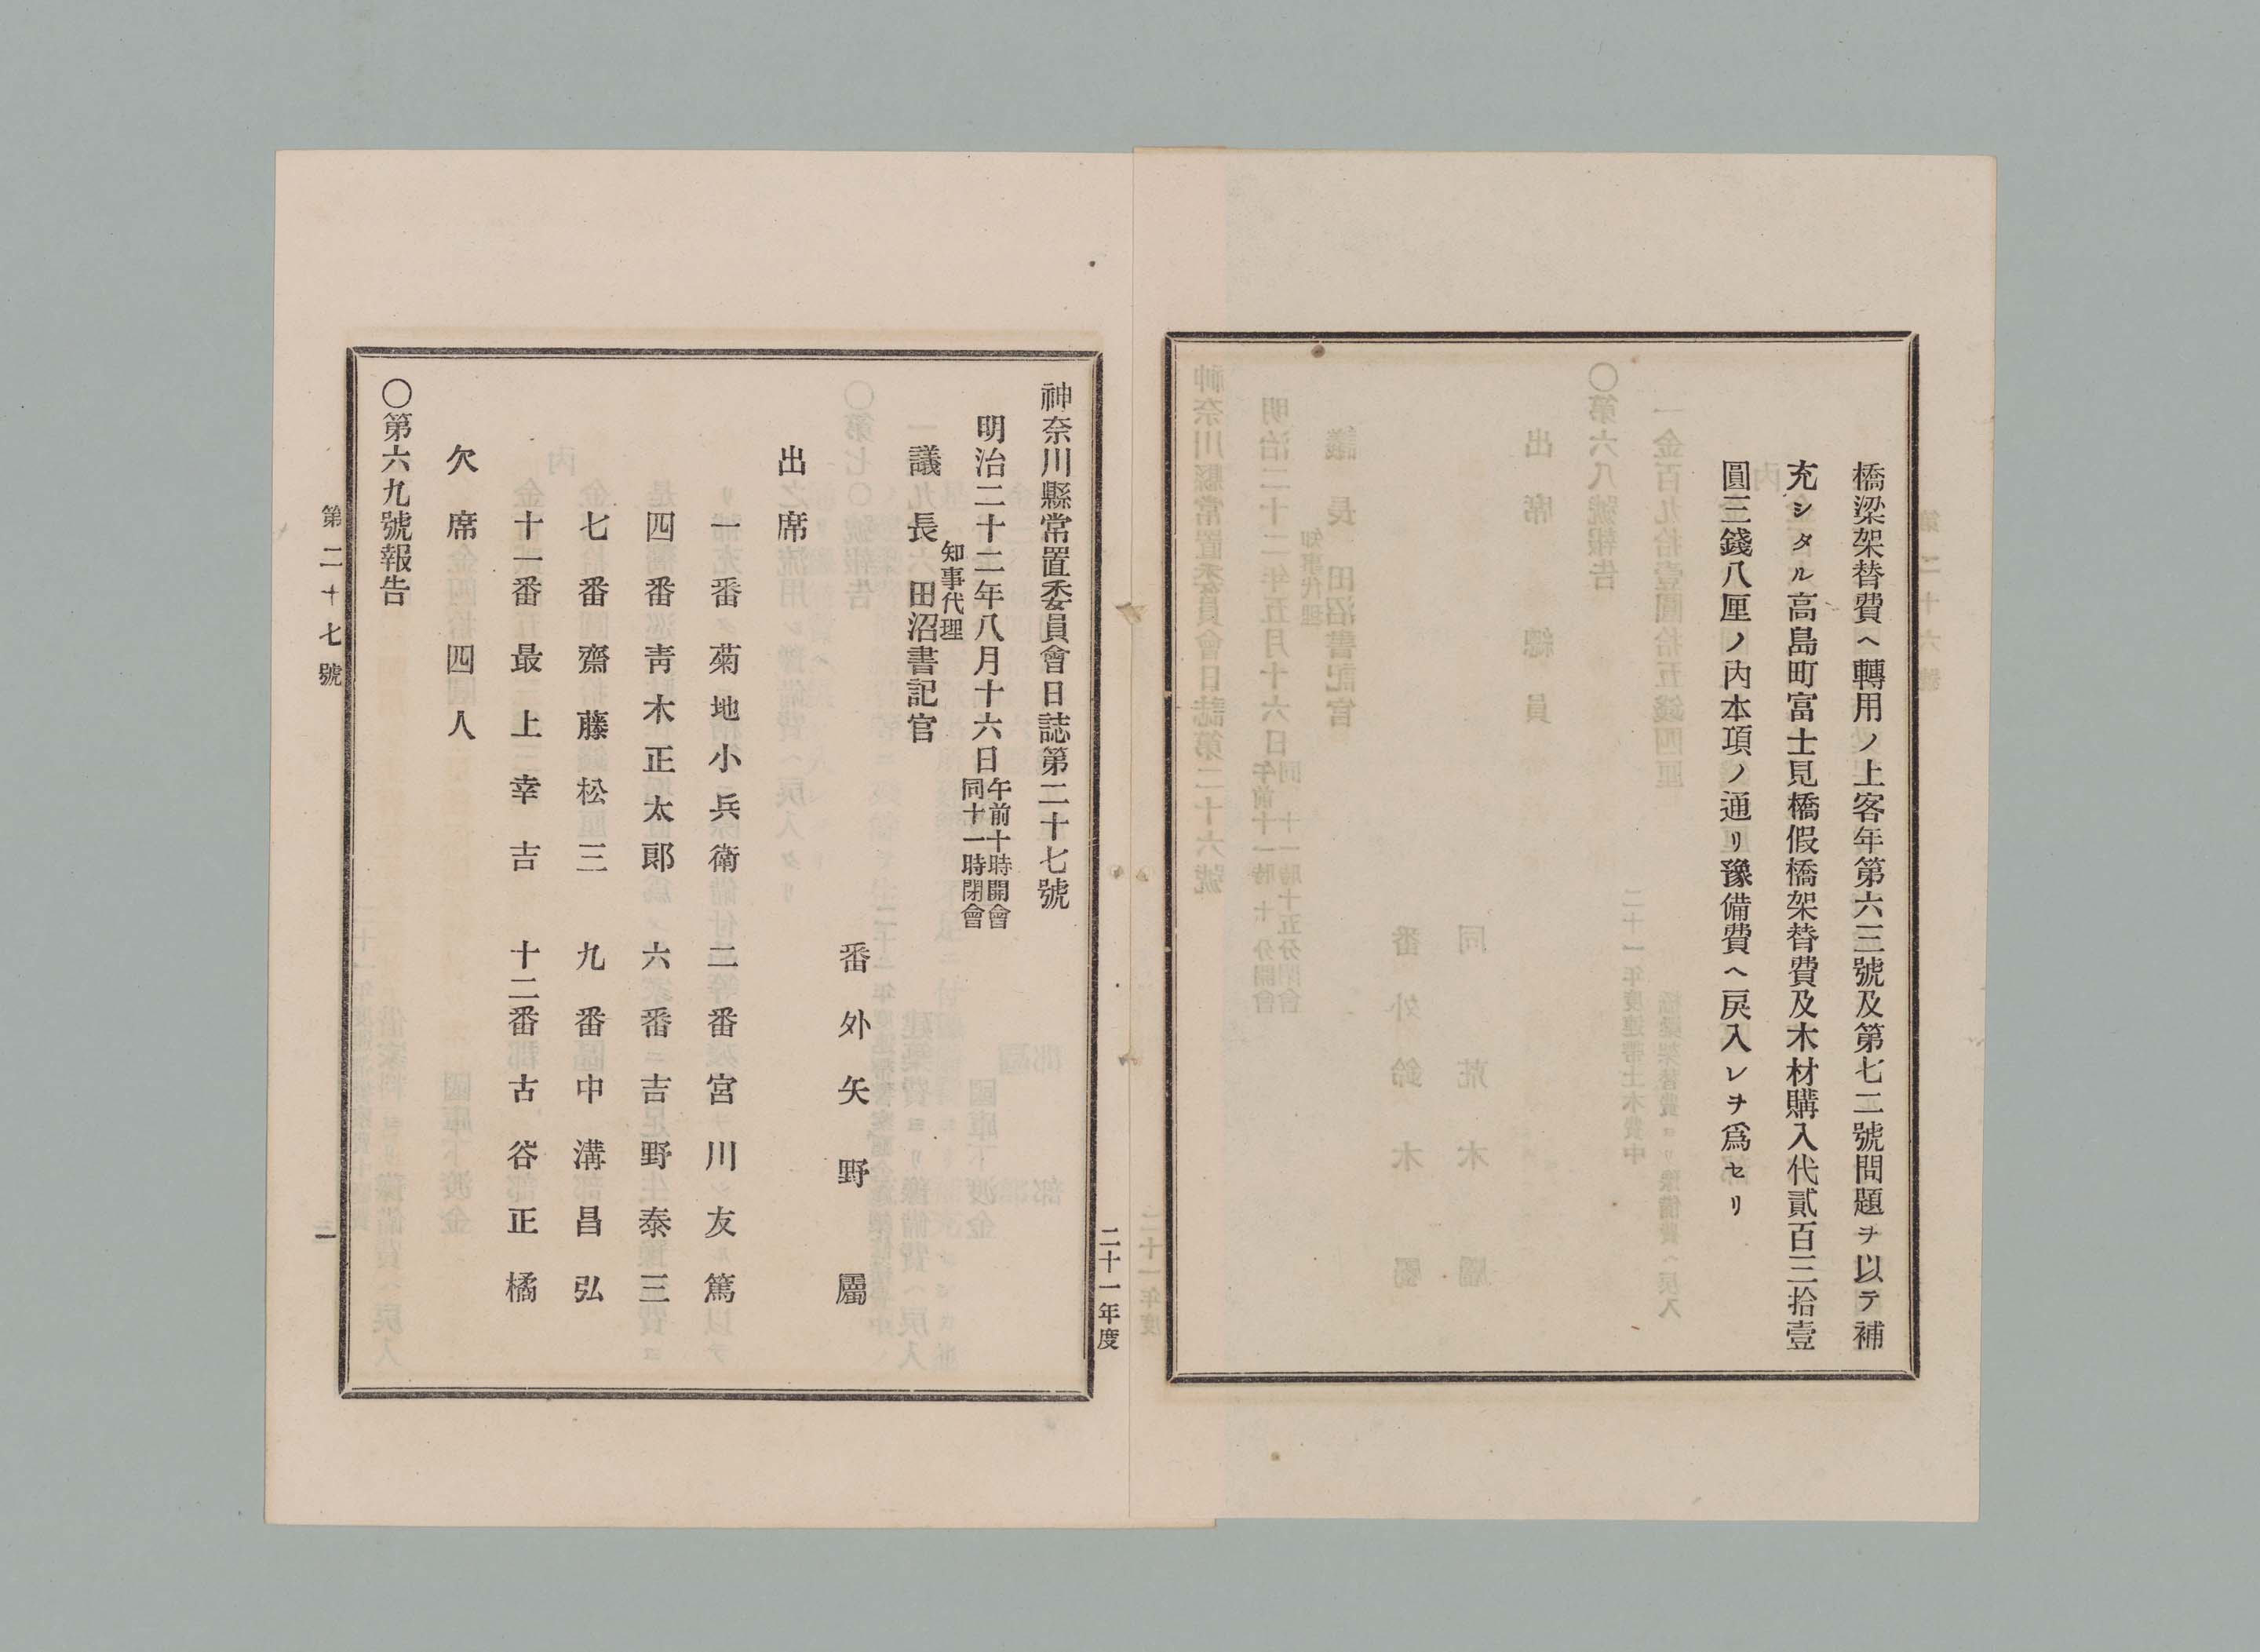 橋梁架替費ヘ轉用ノ上客年第六三號及第七二號問題ヲ以テ補
充シタル高島町富士見橋假橋架替費及木材購入代貳百三拾壹
圓三錢八厘ノ内本項ノ通リ豫備費ヘ戻入レヲ爲セリ
二十一年度
神奈川縣常置委員會日誌第二十七號
明治二十二年八月十六日午前十時開會
同十一時閉會
知事代理
議長 田沼書記官
番外矢野屬
出席
一番菊地小兵衛 二番宮川友篤
四番靑木正太郎 六番吉野泰三
七番齋藤松三 九番中溝昌弘
十一番最上幸吉 十二番古谷正橘
欠席四人
〇第六九號報告
第二十七號
一